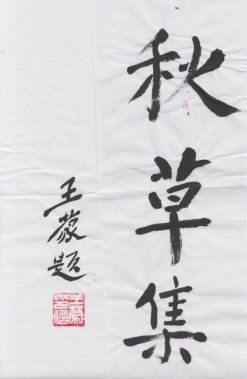 秋草集
王蒙题